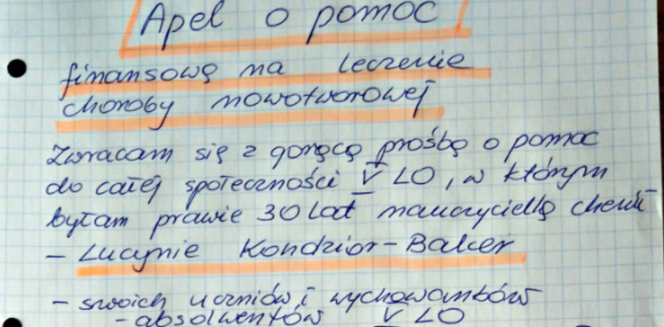 Apel o pomoc
finansową na leczenie
choroby nowotworowej
Zwracam się z gorącą prośbą o pomoc
do całej społeczności V LO, w którym
byłam prawie 30 lat nauczycielką chemii
- Lucynie Kondzior-Baker
- swoich uczniów i wychowanków
- absolwentów V LO